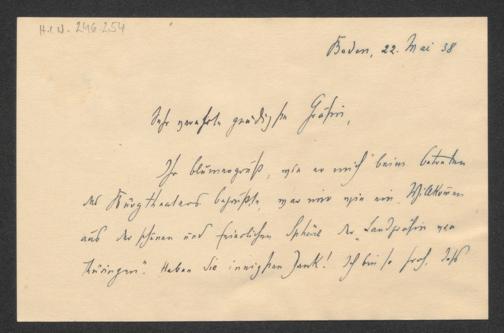 H.I.N. 246.254
Baden, 22. Mai 38
Sehr verehrte gnädigste Gräfin,
Ihr Blumengruß, wie er mich beim Betreten
des Burgtheaters begrüßte, war mir wie ein Willkomm
aus der schönen und feierlichen Sphäre der "Landgräfin von
Thüringen". Haben Sie innigsten Dank! Ich bin so froh, daß